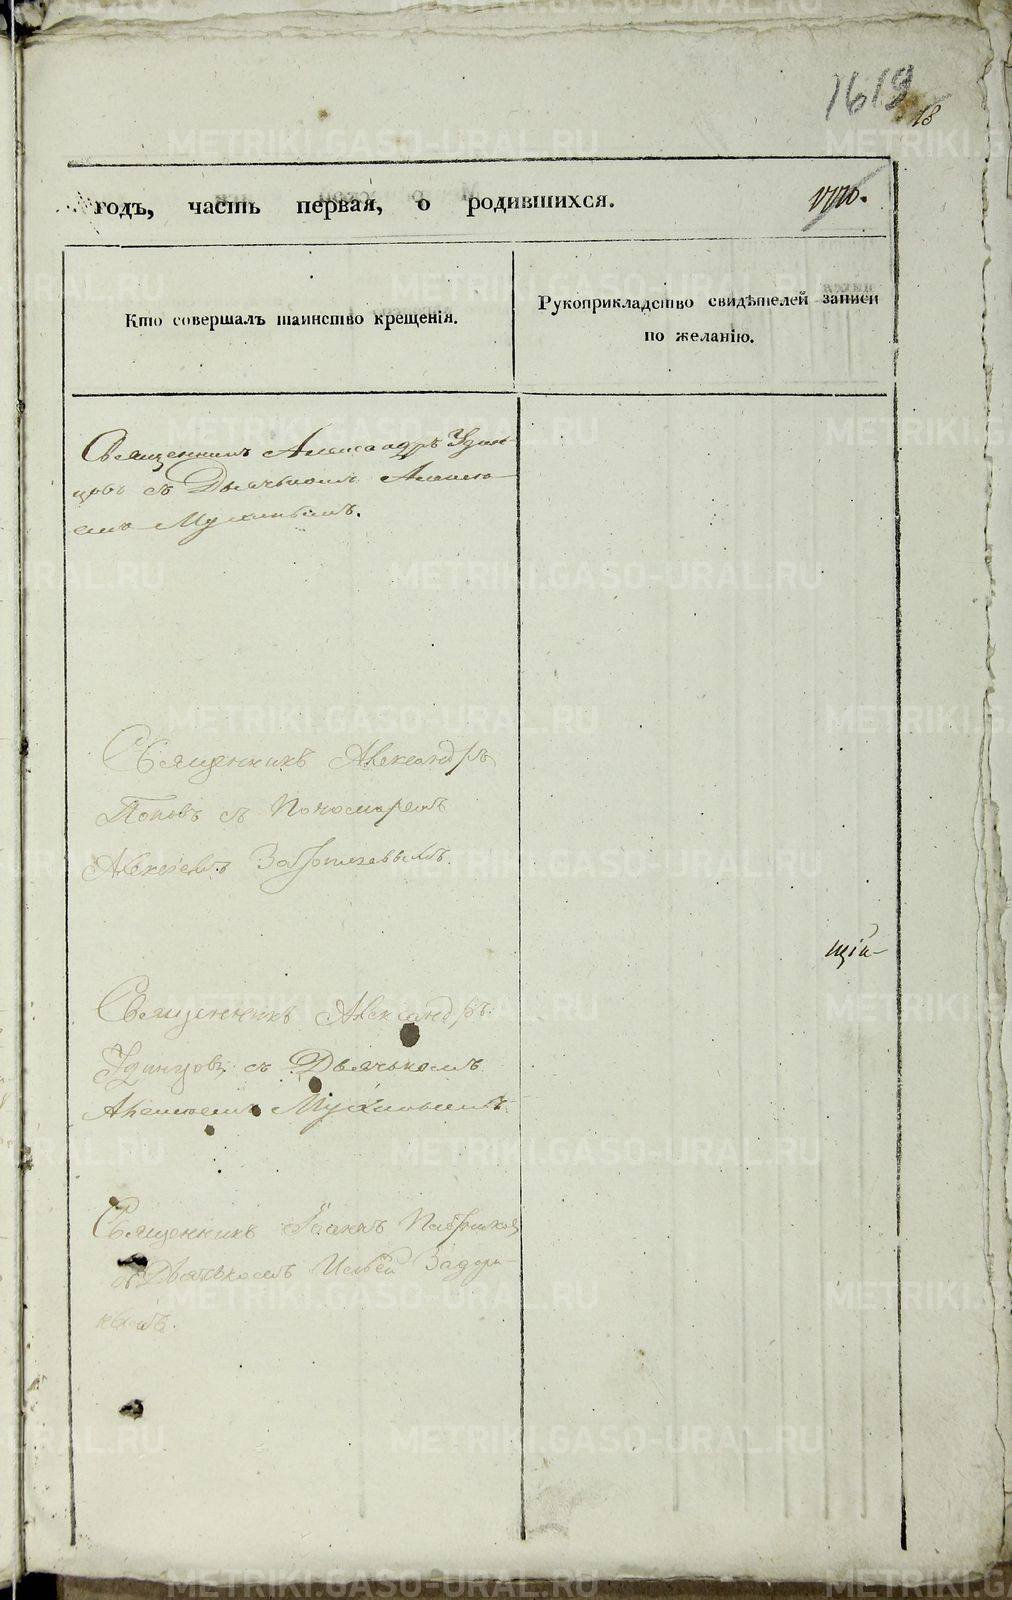 1619
18
годъ, часть первая, о родившихся.
1770.
Кто совершалъ таинство крещенія.
Рукоприкладство свидѣтелей записи
по желанію.
Священникъ Александръ Удин-
цовъ съ Дьячькомъ Алексѣ-
емъ Мухинымъ.
Священникъ Александръ
Поповъ съ Пономаремъ
Алексѣемъ
щій-
Священникъ Александръ
Удинцовъ съ Дьячькомъ
Алексѣемъ Мухинымъ
Священникъ Іоаннъ
съ Дьячькомъ Ильей Задори-
нымъ.
METRIKI.GASO-URAL.RU